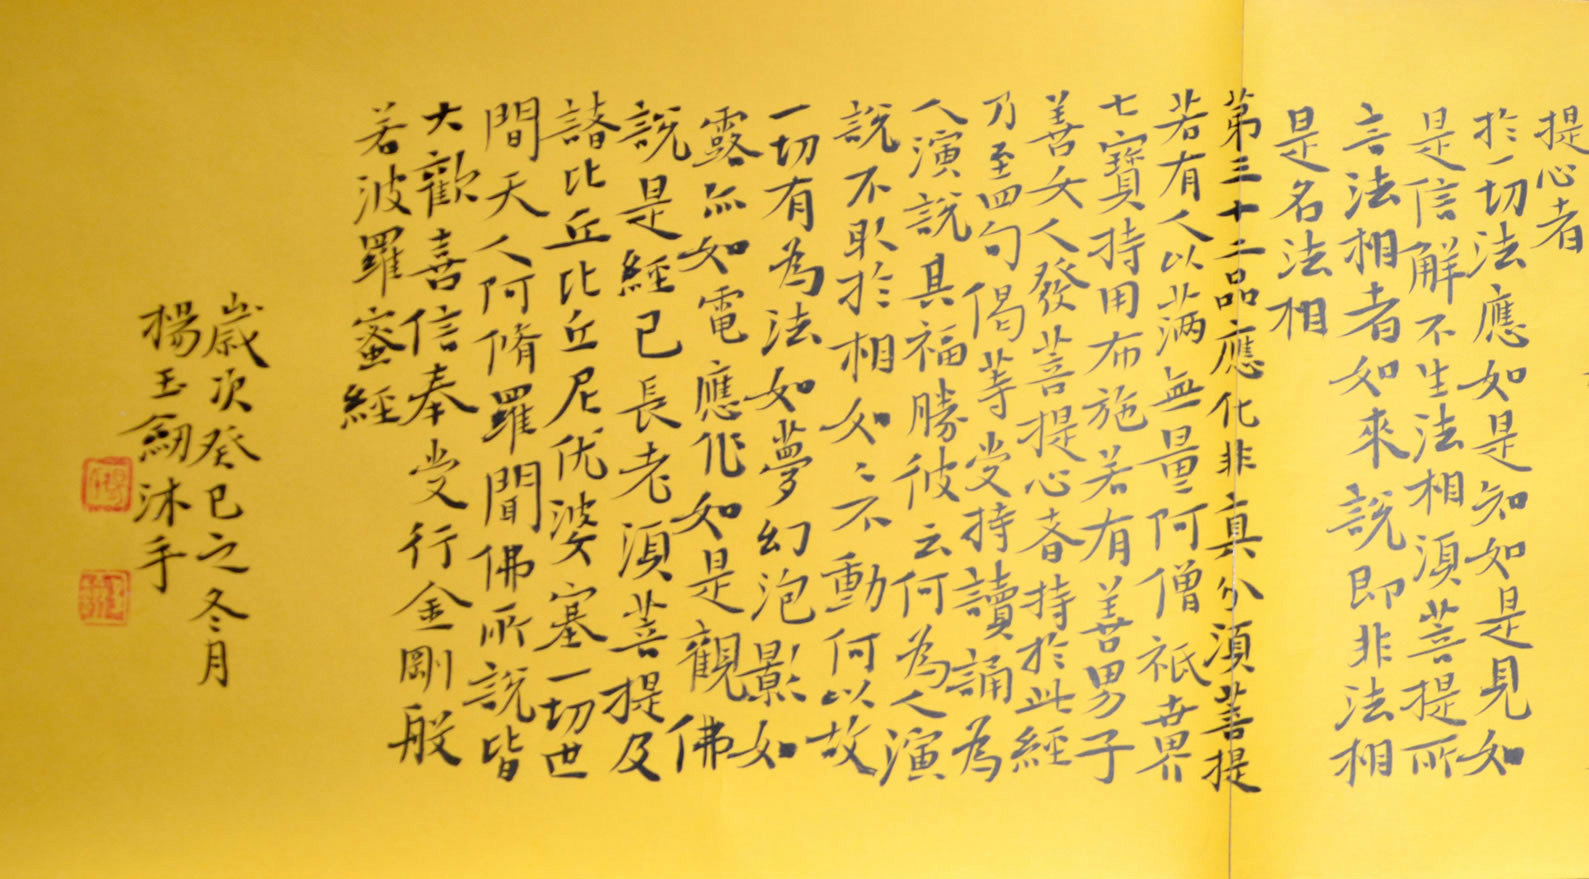 提心者
於一切法應如是知如是見如
是信解不生法相須菩提所
言法相者如來說即非法相
是名法相
第三十二品應化非真分須菩提
若有人以滿無量阿僧祇世界
七寶持用布施若有善男子
善女人發菩提心者持於此經
乃至四句偈等受持讀誦為
人演說其福勝彼云何為人演
說不取於相如〻不動何以故
一切有為法如夢幻泡影如
露亦如電應作如是觀佛
說是經已長老須菩提及
諸比丘比丘尼優婆塞一切世
間天人阿脩羅聞佛所說皆
大歡喜信奉受行金剛般
若波羅蜜經
歲次癸巳之冬月
楊玉劒沐手